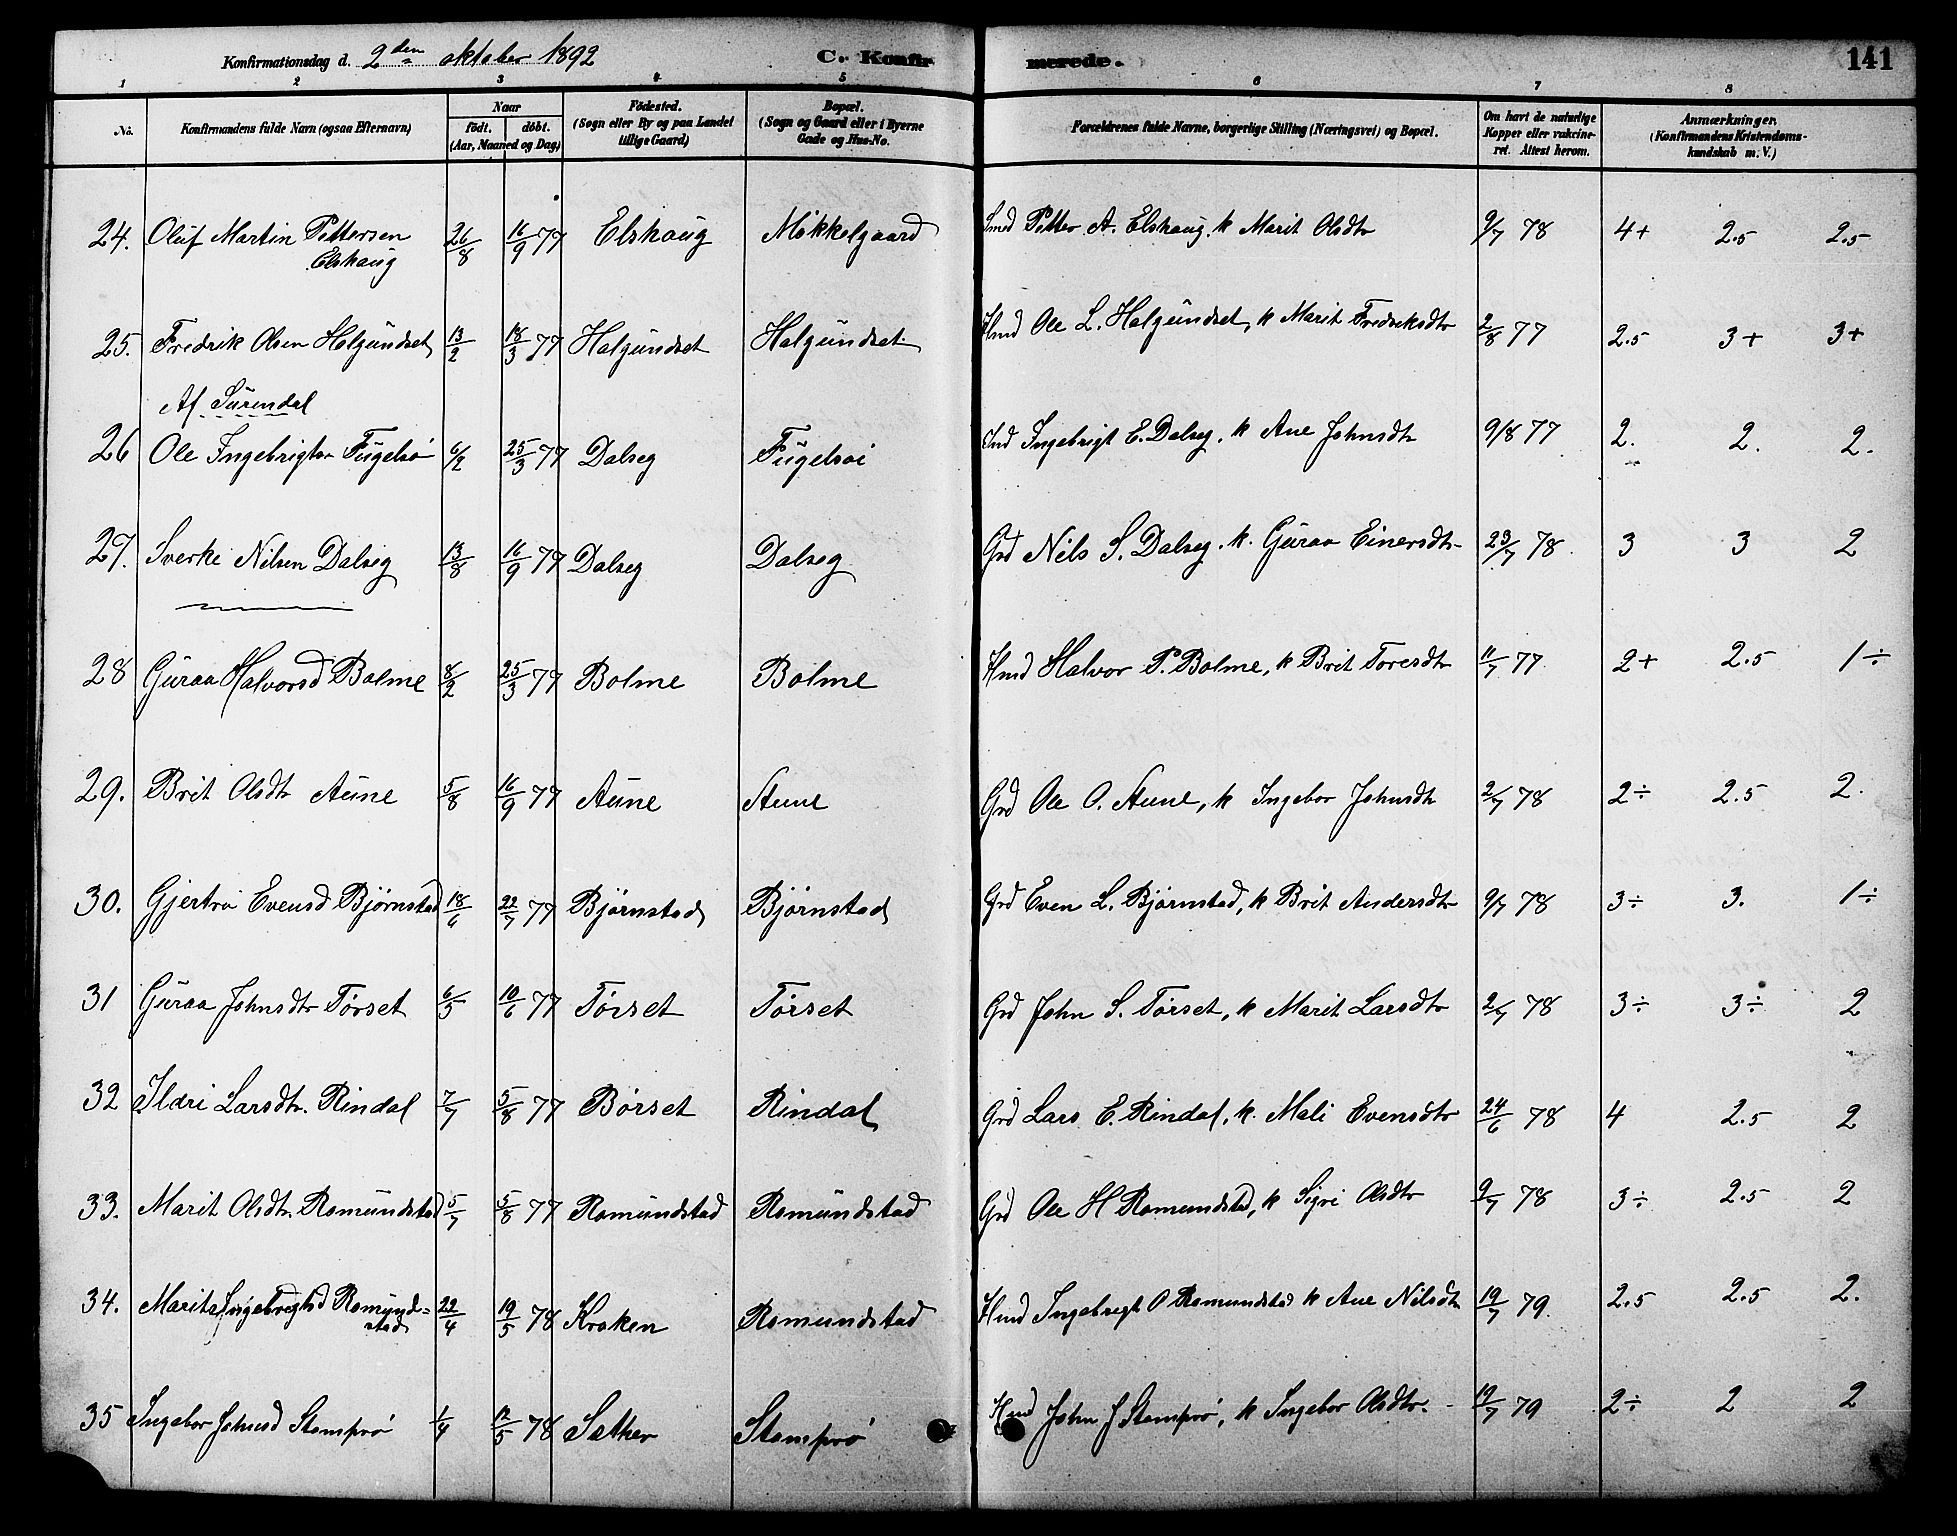 Konfirmationsdag d. 2den oktober 1892 C. Konfirmerede. 141
1 2 3 4 5 6 7 8
No. Konfirmandens fulde Navn (ogsaa Efternavn) Naar födt. döbt. (Aar, Maaned og Dag) Födested. (Sogn eller By og paa Landet tillige Gaard) Bopæl. (Sogn og Gaard eller i Byerne Gade og Hus-No. Forældrenes fulde Navne, borgerlige Stilling (Næringsvei) og Bopæl. Om havt de naturlige Kopper eller vakcineret. Attest herom. Anmærkninger. (Konfirmandens Kristendomskundskab m. V.)
24. Oluf Martin Pettersen Elshaug 26/8 16/9 77 Elshaug Mikkelgaard Smed Petter A. Elshaug, k Marit Olsdtr 9/7 78 4+ 2.5 2.5
25. Fredrik Olsen Halgundset 13/2 18/3 77 Halgundset Halgundset Hmd Ole L. Halgundset, k Marit Fredriksdtr 2/8 77 2.5 3+ 3+
Af Surendal
26 Ole Ingebrigtsr Fugelsö 6/2 25/3 77 Dalseg Fugelsöi Ind Ingebrigt E. Dalseg, k Ane Johnsdtr 9/8 77 2. 2. 2.
27. Sverke Nilsen Dalseg 13/8 16/9 77 Dalseg Dalseg Grd Nils S. Dalseg. k. Guraa Einersdtr 23/7 78. 3 3 2
28 Guraa Halvorsd Bolme 8/2 25/3 77 Bolme Bolme Hmd Halvor P. Bolme, k Brit Toresdtr 11/7 77 2+ 2.5 1÷
29. Brit Olsdtr Aune 5/8 16/9 77 Aune Aune Grd Ole O. Aune, k Ingebor Johnsdtr 2/7 78 2÷ 2.5 2.
30. Gjertrü Evensd Bjørnstad 18/6 22/7 77 Bjørnstad Bjørnstad Grd Even L. Bjørnstad, k Brit Andersdtr 9/7 78 3÷ 3. 1÷
31 Guraa Johnsdtr Tørset 6/5 10/6 77 Tørset Tørset Grd John S. Tørset, k Marit Larsdtr 2/7 78 3÷ 3÷ 2
32 Ildri Larsdtr. Rindal 7/7 5/8 77 Børset Rindal Grd Lars E. Rindal, k. Mali Evensdtr 24/6 78 4 2.5 2
33. Marit Olsdtr. Romundstad 5/7 5/8 77 Romundstad Romundstad Grd Ole H Romundstad, k Sigri Olsdtr 9/7 78 3÷ 2.5 2
34. Marit Ingebrigtsd Romund=stad 22/4 19/5 78 Kroken Romundstad Hmd Ingebrigt O Romundstad k Ane Nilsdtr 19/7 79. 2.5 2.5 2.
35 Ingebor Johnsd Stomprø 1/4 12/5 78 Sæther Stomprø Hmd John J Stomprø, k Ingebor Olsdtr. 19/7 79 2÷ 2 2